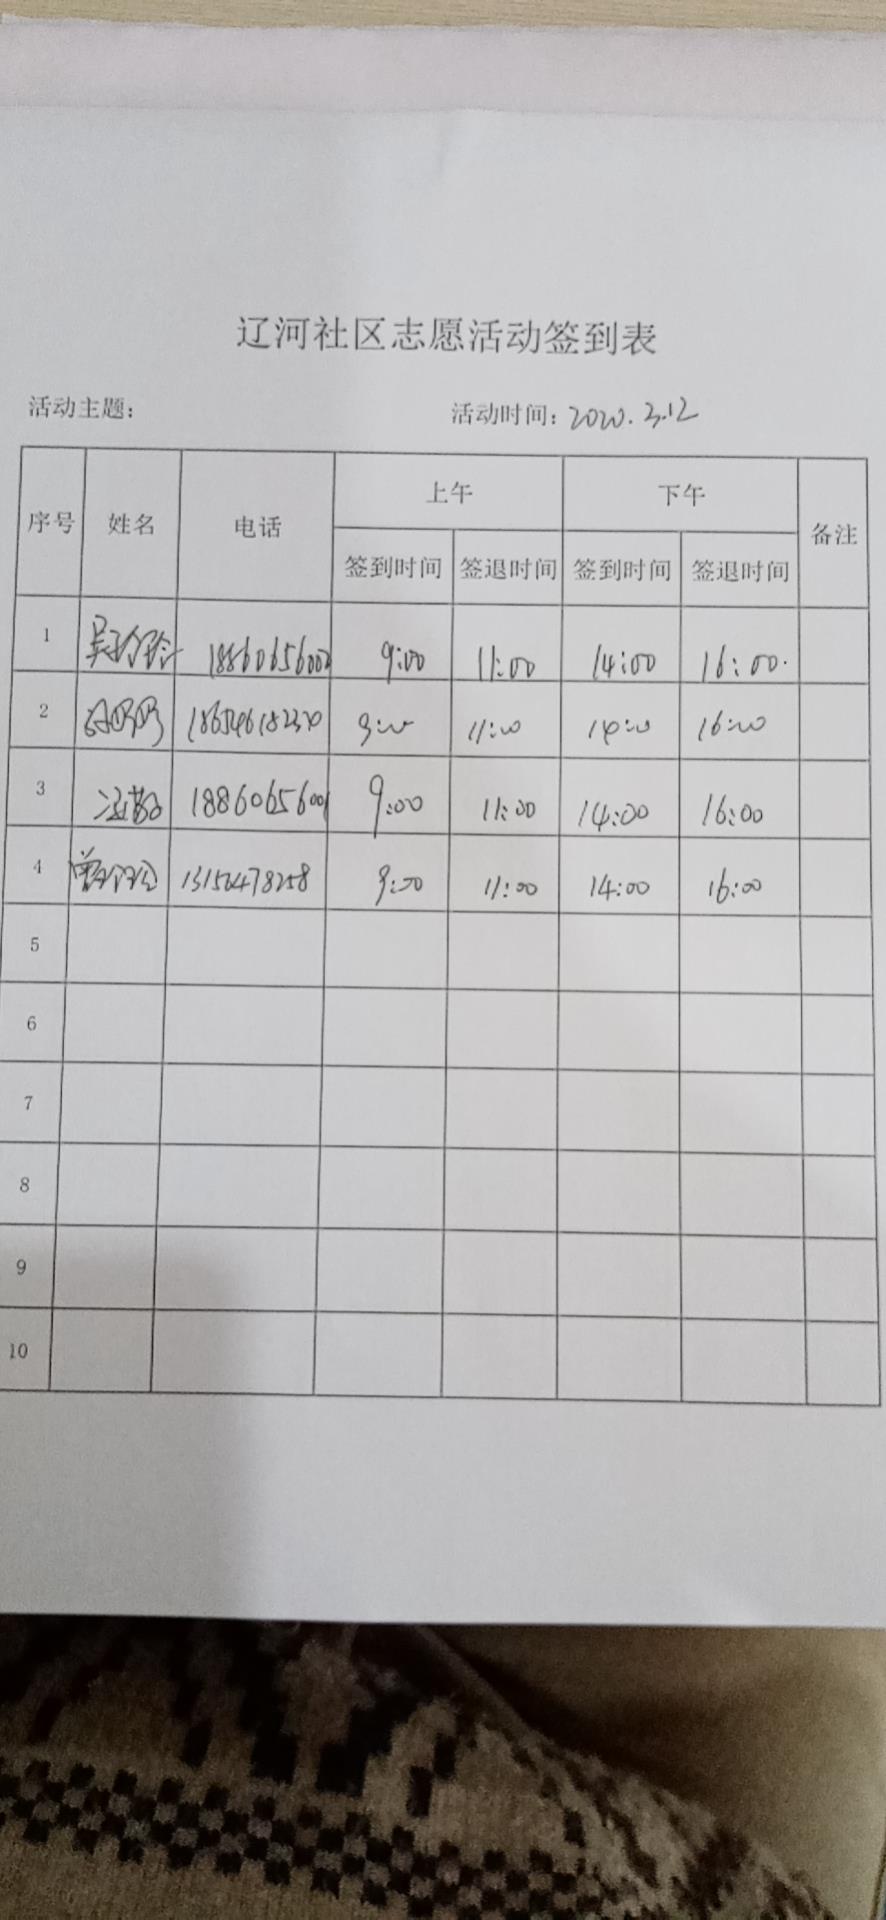 辽河社区志愿活动签到表
活动主题: 活动时间: 2020.3.12
序号 姓名 电话 上午 下午 备注
签到时间 签退时间 签到时间 签退时间
1 18860656002 9:00 11:00 14:00 16:00.
2 9:00 11:00 14:00 16:00
3 9:00 11:00 14:00 16:00
4 9:00 11:00 14:00 16:00
5
6
7
8
9
10